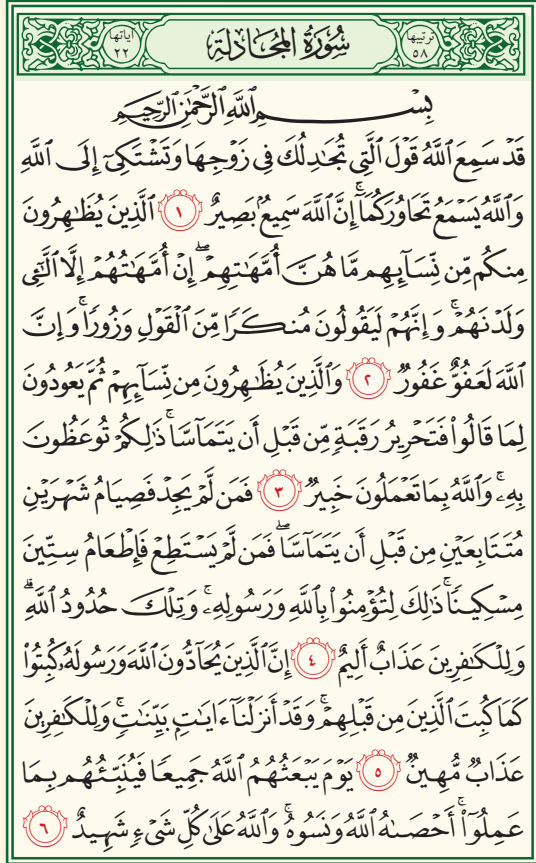 ترتيبها ٥٨ سُورَةُ المُجَادلَةِ آياتها ٢٢
بِسْمِ ٱللَّهِ ٱلرَّحْمَٰنِ ٱلرَّحِيمِ
قَدْ سَمِعَ ٱللَّهُ قَوْلَ ٱلَّتِي تُجَٰدِلُكَ فِي زَوْجِهَا وَتَشْتَكِىٓ إِلَى ٱللَّهِ
وَٱللَّهُ يَسْمَعُ تَحَاوُرَكُمَآۚ إِنَّ ٱللَّهَ سَمِيعُۢ بَصِيرٌ ١ ٱلَّذِينَ يُظَٰهِرُونَ
مِنكُم مِّن نِّسَآئِهِم مَّا هُنَّ أُمَّهَٰتِهِمْۖ إِنْ أُمَّهَٰتُهُمْ إِلَّا ٱلَّٰٓـِٔي
وَلَدْنَهُمْۚ وَإِنَّهُمْ لَيَقُولُونَ مُنكَرٗا مِّنَ ٱلْقَوْلِ وَزُورٗاۚ وَإِنَّ
ٱللَّهَ لَعَفُوٌّ غَفُورٌ ٢ وَٱلَّذِينَ يُظَٰهِرُونَ مِن نِّسَآئِهِمْ ثُمَّ يَعُودُونَ
لِمَا قَالُوا۟ فَتَحْرِيرُ رَقَبَةٍ مِّن قَبْلِ أَن يَتَمَآسَّاۚ ذَٰلِكُمْ تُوعَظُونَ
بِهِۦۚ وَٱللَّهُ بِمَا تَعْمَلُونَ خَبِيرٌ ٣ فَمَن لَّمْ يَجِدْ فَصِيَامُ شَهْرَيْنِ
مُتَتَابِعَيْنِ مِن قَبْلِ أَن يَتَمَآسَّاۖ فَمَن لَّمْ يَسْتَطِعْ فَإِطْعَامُ سِتِّينَ
مِسْكِينٗاۚ ذَٰلِكَ لِتُؤْمِنُوا۟ بِٱللَّهِ وَرَسُولِهِۦۚ وَتِلْكَ حُدُودُ ٱللَّهِۗ
وَلِلْكَٰفِرِينَ عَذَابٌ أَلِيمٌ ٤ إِنَّ ٱلَّذِينَ يُحَآدُّونَ ٱللَّهَ وَرَسُولَهُۥ كُبِتُوا۟
كَمَا كُبِتَ ٱلَّذِينَ مِن قَبْلِهِمْۚ وَقَدْ أَنزَلْنَآ ءَايَٰتِۭ بَيِّنَٰتٍۚ وَلِلْكَٰفِرِينَ
عَذَابٌ مُّهِينٌ ٥ يَوْمَ يَبْعَثُهُمُ ٱللَّهُ جَمِيعٗا فَيُنَبِّئُهُم بِمَا
عَمِلُوٓا۟ۚ أَحْصَىٰهُ ٱللَّهُ وَنَسُوهُۚ وَٱللَّهُ عَلَىٰ كُلِّ شَىْءٍ شَهِيدٌ ٦